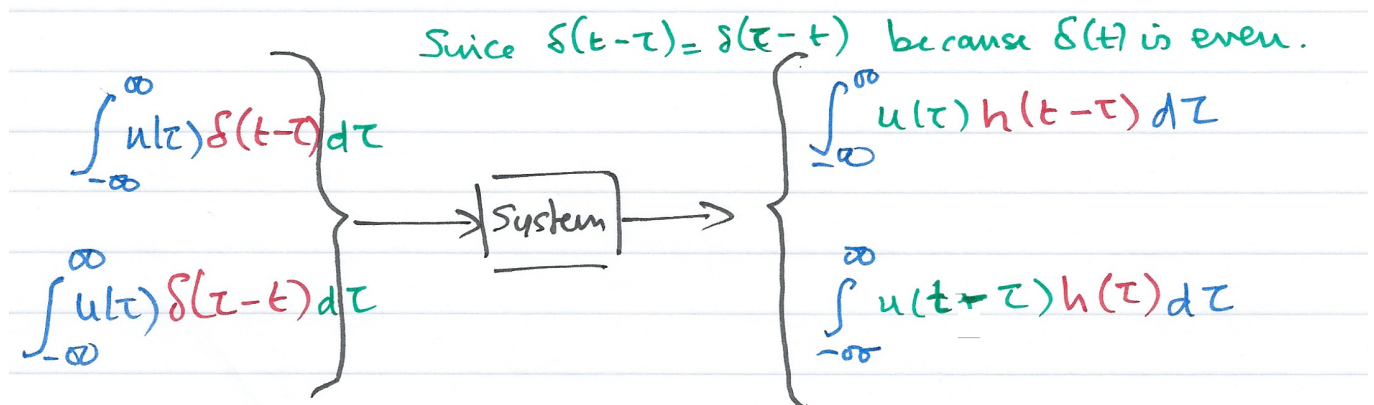 Suice δ(t-τ)=δ(τ-t) because δ(t) is even.
∫_{-∞}^{∞} u(τ)δ(t-τ)dτ
∫_{-∞}^{∞} u(τ)h(t-τ)dτ
System
∫_{-∞}^{∞} u(τ)δ(τ-t)dτ
∫_{-∞}^{∞} u(t-τ)h(τ)dτ